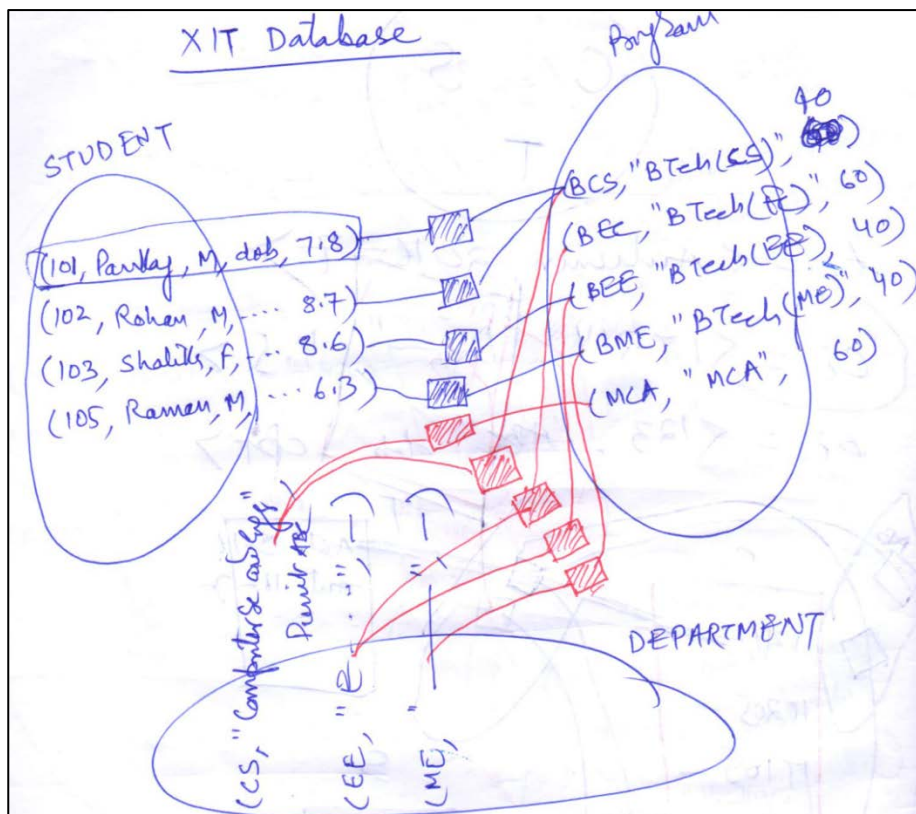 XIT Database
Program
STUDENT
40
(101, Pankaj, M, dob, 7.8)
(102, Rohan, M, .... 8.7)
(103, Shalik, F, ... 8.6)
(105, Raman, M, ... 6.3)
(BCS, "BTech(CS)", )
(BEC, "BTech(EC)", 60)
(BEE, "BTech(EE), 40)
(BME, "BTech(ME)", 40)
(MCA, "MCA", 60)
DEPARTMENT
(CS, "Computer Sc and Engg",
Punit ABC
(EE, "E — ", —)
(ME, " — " —)